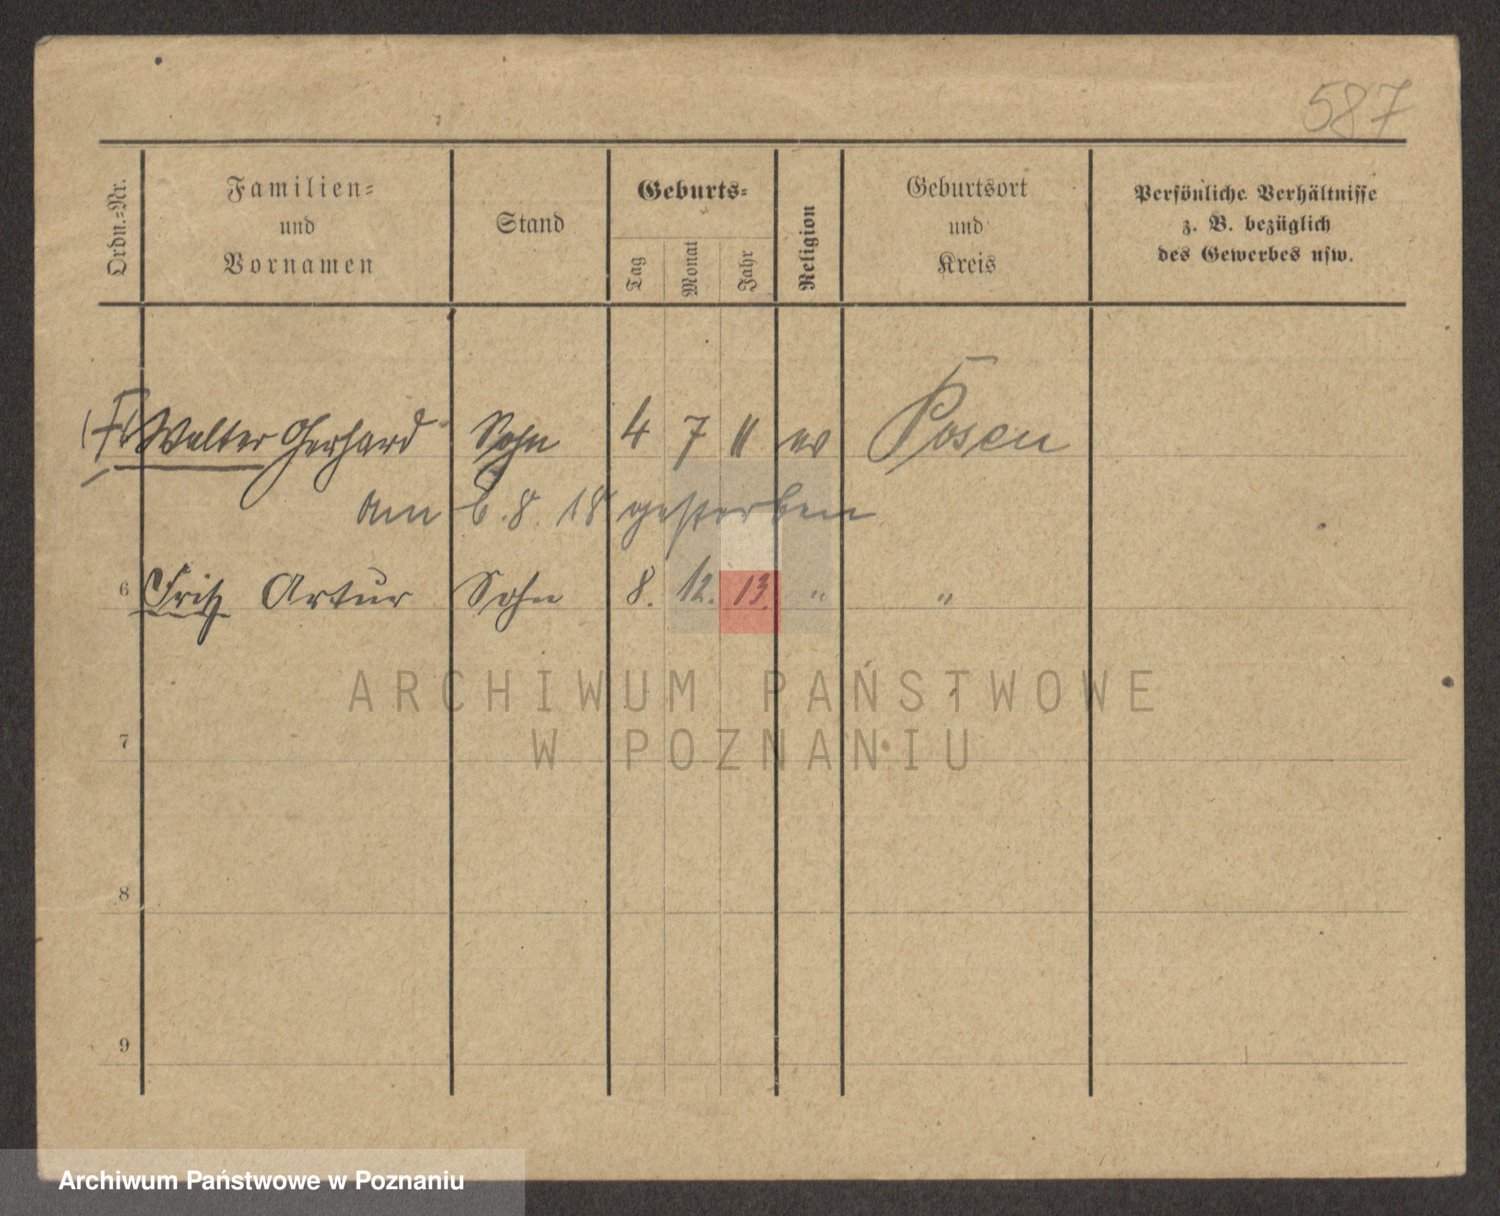 587
Ordn.=Nr.
Familien=
und
Vornamen
Stand
Geburts=
Tag
Monat
Jahr
Religion
Geburtsort
und
Kreis
Persönliche Verhältnisse
z. B. bezüglich
des Gewerbes usw.
Walter Gerhard Sohn 4 7 11 ev Posen
am 6.8.18 gestorben
6 Fritz Artur Sohn 8. 12. 13. " "
ARCHIWUM PAŃSTWOWE
W POZNANIU
7
8
9
Archiwum Państwowe w Poznaniu